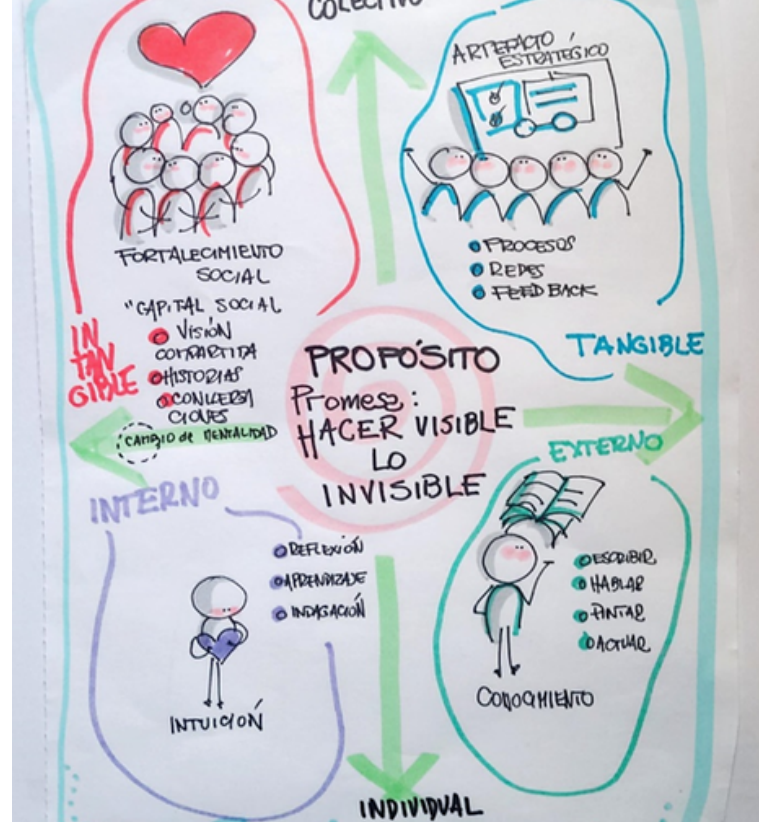 COLECTIVO
ARTEFACTO
ESTRATÉGICO
FORTALECIMIENTO
SOCIAL
"CAPITAL SOCIAL
VISIÓN
COMPARTITA
HISTORIAS
CONVERSA
CIONES
¡CAMBIO de MENTALIDAD
IN
TAN
GIBLE
PROCESOS
REDES
FEEDBACK
TANGIBLE
PROPÓSITO
Promesa:
HACER VISIBLE
LO
INVISIBLE
INTERNO
REFLEXIÓN
APRENDIZAJE
INDAGACIÓN
INTUICIÓN
EXTERNO
ESCRIBIR
HABLAR
PINTAR
ACTUAR
CONOCIMIENTO
INDIVIDUAL